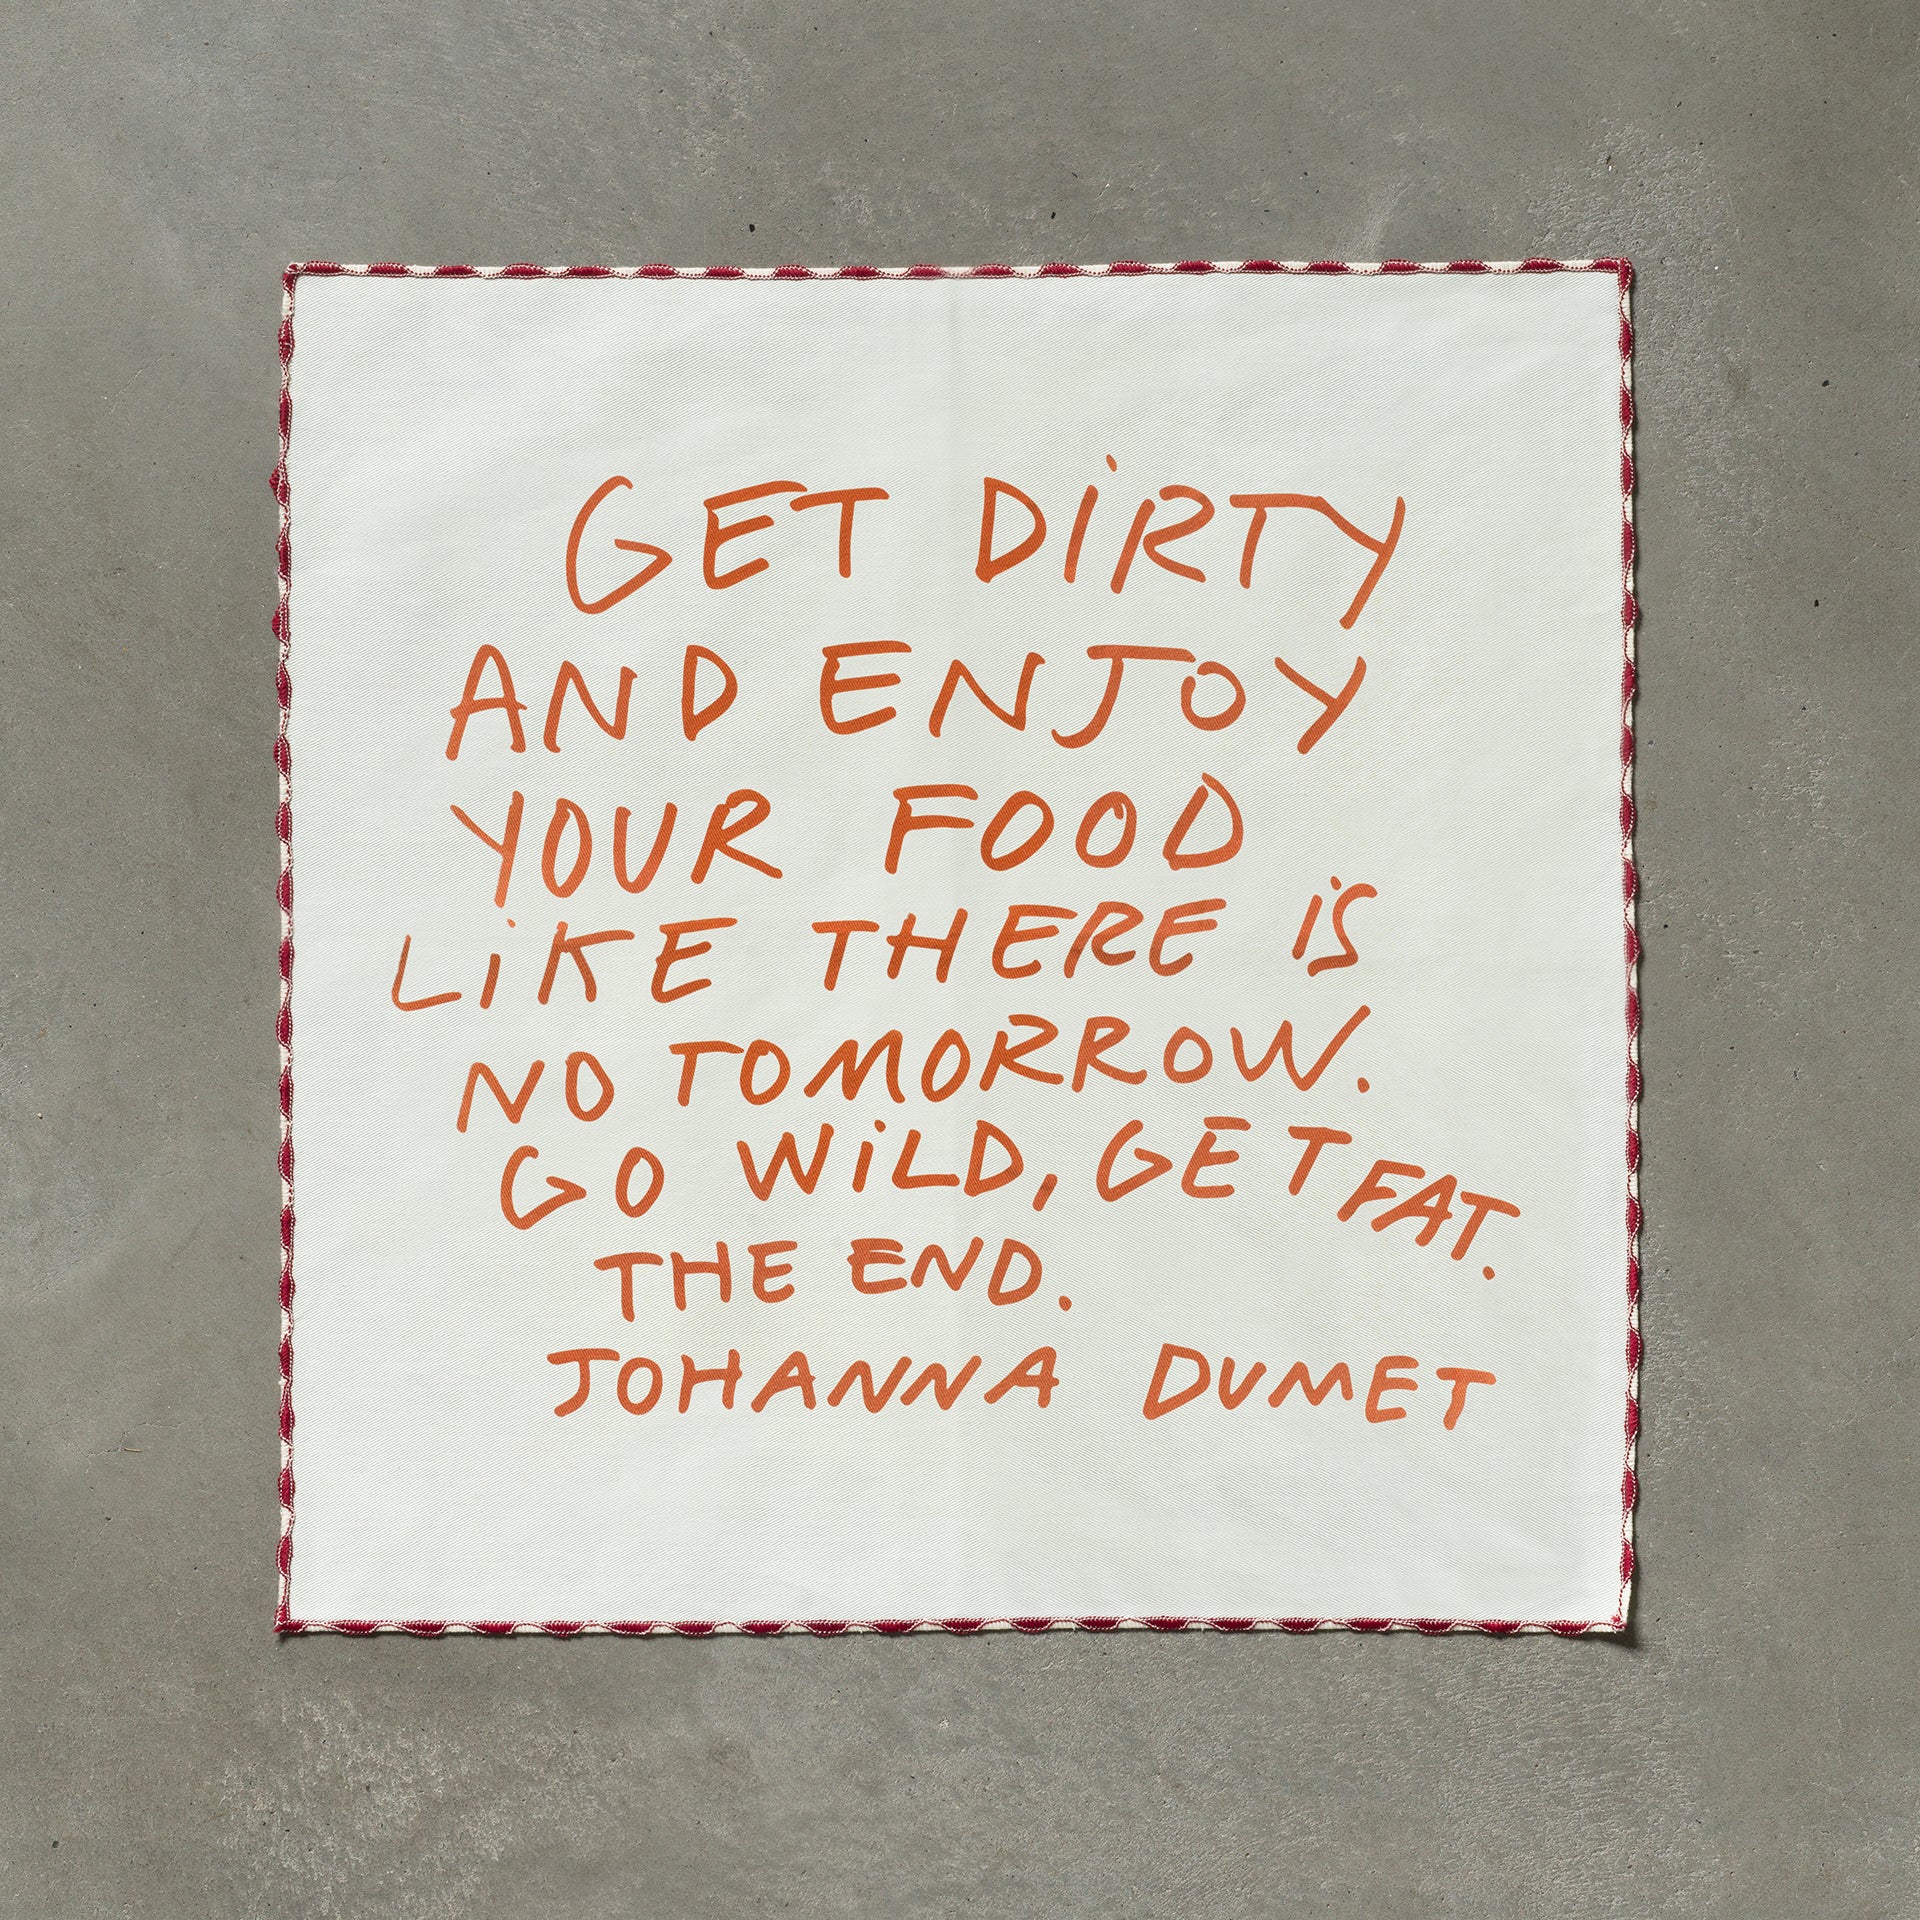 GET DiRTY
AND ENJOY
YOUR FOOD
LiKE THERE iS
NO TOMORROW.
GO WiLD, GET FAT.
THE END.
JOHANNA DUMET